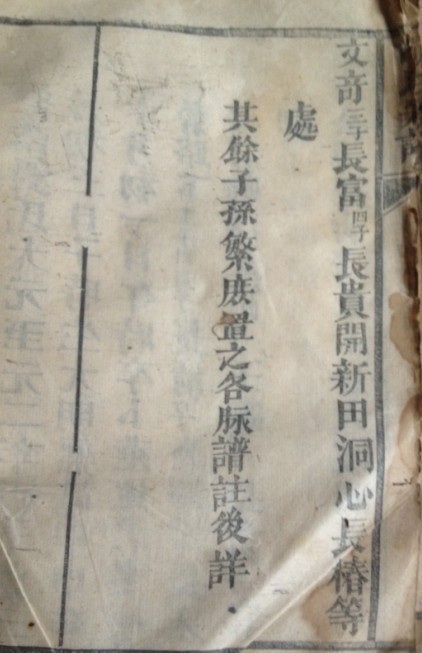 文奇三子長富四子長貴開新田洞心長椿等
處
其餘子孫繁庶置之各脉譜註後詳